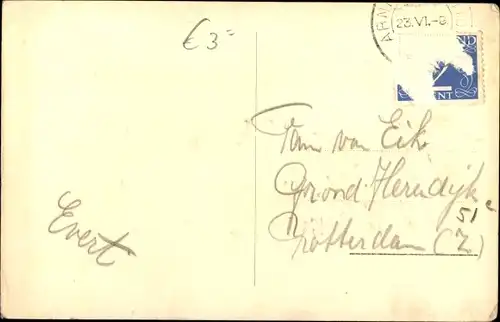 € 3=
ARN
23.VI.-8
ND
ENT
Fam van Eik
Grond Herendijk
51c
Rotterdam (Z)
Evert